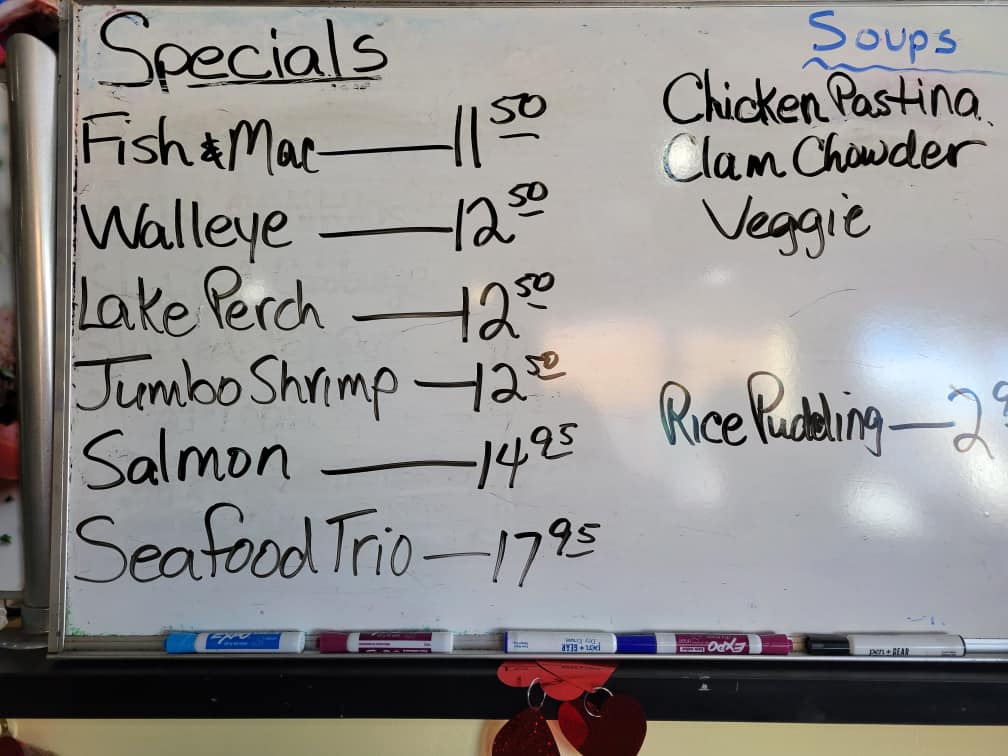 Specials
Fish & Mac — 11 50
Walleye — 12 50
Lake Perch — 12 50
Jumbo Shrimp — 12 50
Salmon — 14 95
Seafood Trio — 17 95
Soups
Chicken Pastina
Clam Chowder
Veggie
Rice Pudding — 2 9
EXPO
pen + GEAR
EXPO
pen + GEAR